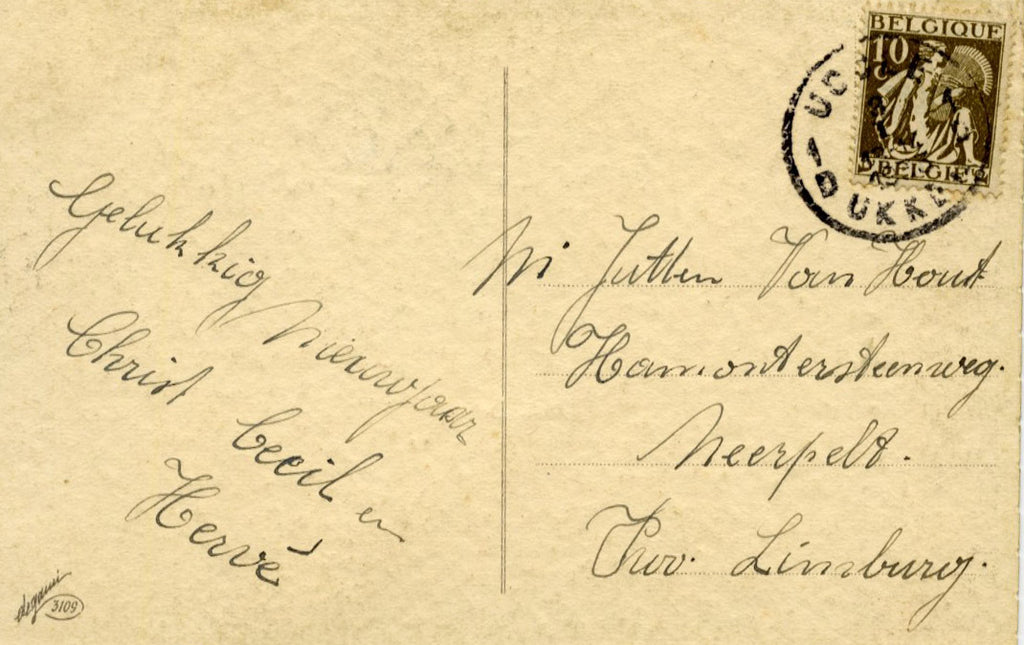 BELGIQUE
10
BELGIË
1
D UKKE
Gelukkig Nieuwjaar
Christ Cecil en
Hervé
Jutten Van Hout
Hamontersteenweg.
Neerpelt.
Prov. Limburg.
3109